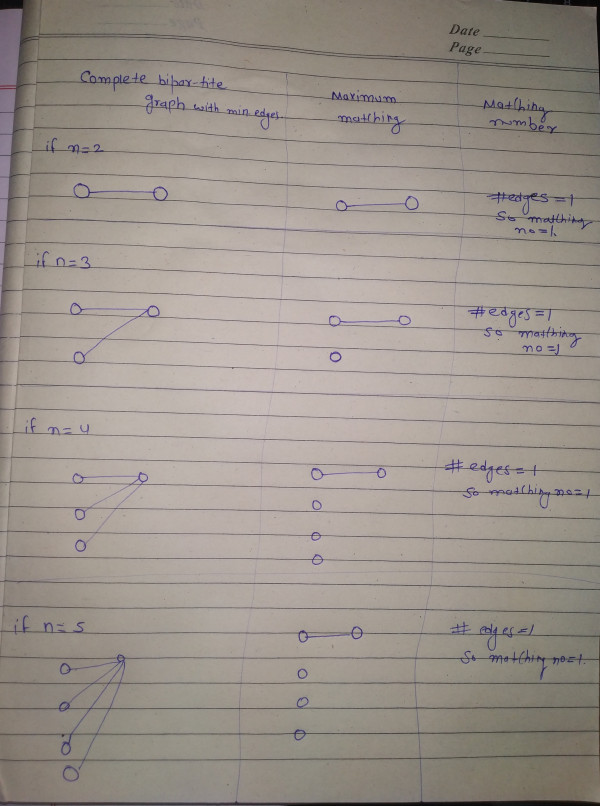 Date
Page
Complete bipartite
graph with min edges.
Maximum
matching
Matching
number
if n=2
#edges = 1
So matching
no=1.
if n=3
#edges=1
so matching
no=1
if n=4
# edges = 1
So matching no=1
if n=5
# edges=1
So matching no=1.